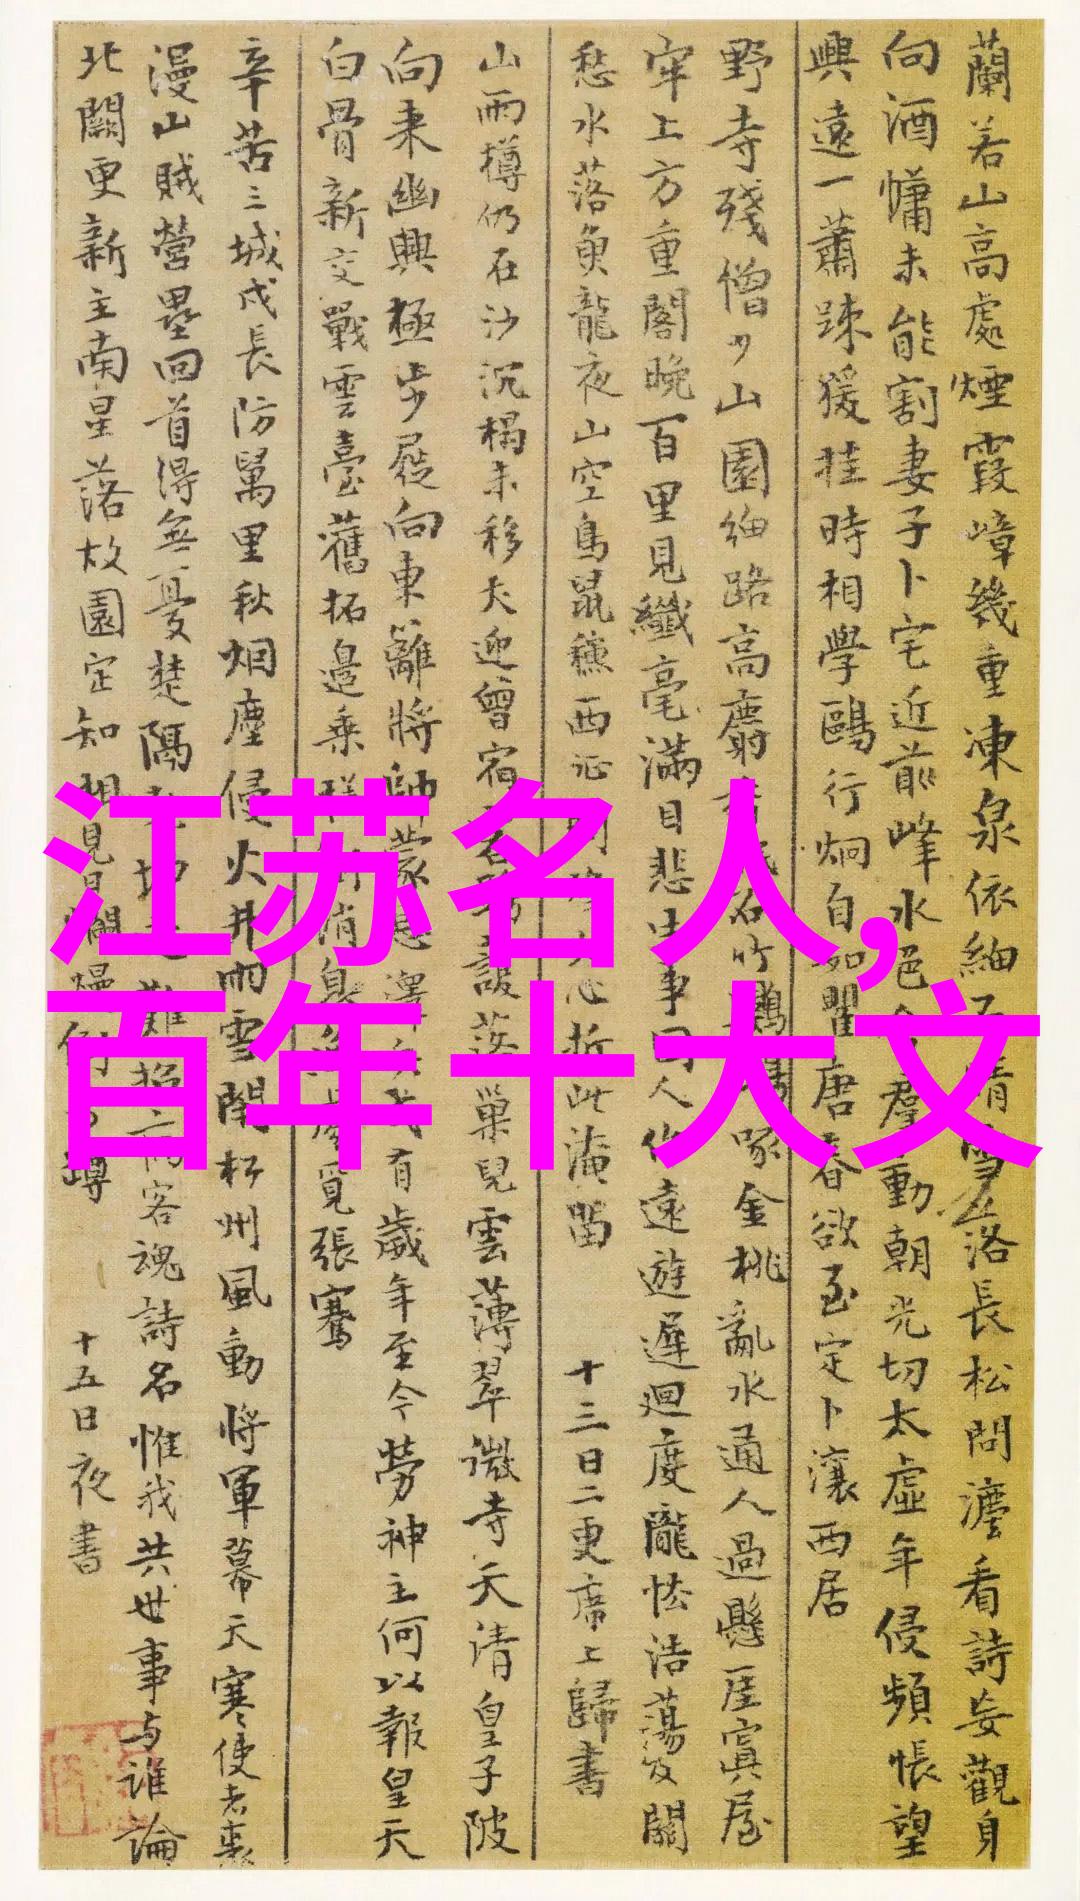 蘭若山高處煙霞嶂幾重凍泉依細石晴雪落長松問灋看詩妄觀身
向酒慵未能割妻子卜宅近前峰水色含群動朝光切太虛年侵頻悵望
興遠一蕭踈猨挂時相學鷗行炯自如瞿唐春欲至定卜瀼西居
野寺殘僧少山園細路高麝香眠石竹鸚鵡啄金桃亂水通人過懸崖寘屋
牢上方重閣晚百里見纖毫滿目悲生事因人作遠遊遲迴度隴怯浩蕩及關
愁水落魚龍夜山空鳥鼠穐西征問烽火心折此淹留
十三日二更席上歸書
山雨樽仍在沙沉榻未移犬迎曾宿客鴉護落巢兒雲薄翠微寺天清皇子陂
向來幽興極步屧向東籬將帥蒙恩澤兵戈有歲年至今勞神主何以報皇天
白骨新交戰雲臺舊拓邊乘槎斷消息無處覓張騫
辛苦三城戍長防萬里秋烟塵侵火井雨雪閉松州風動將軍幕天寒使者裘
漫山賊營壘回首得無憂楚隔 難招 客魂詩名惟我共世事与誰論
北闕更新主南星落故園定知相見日爛熳倒 罇
十五日夜書
江苏名人,
百年十大文